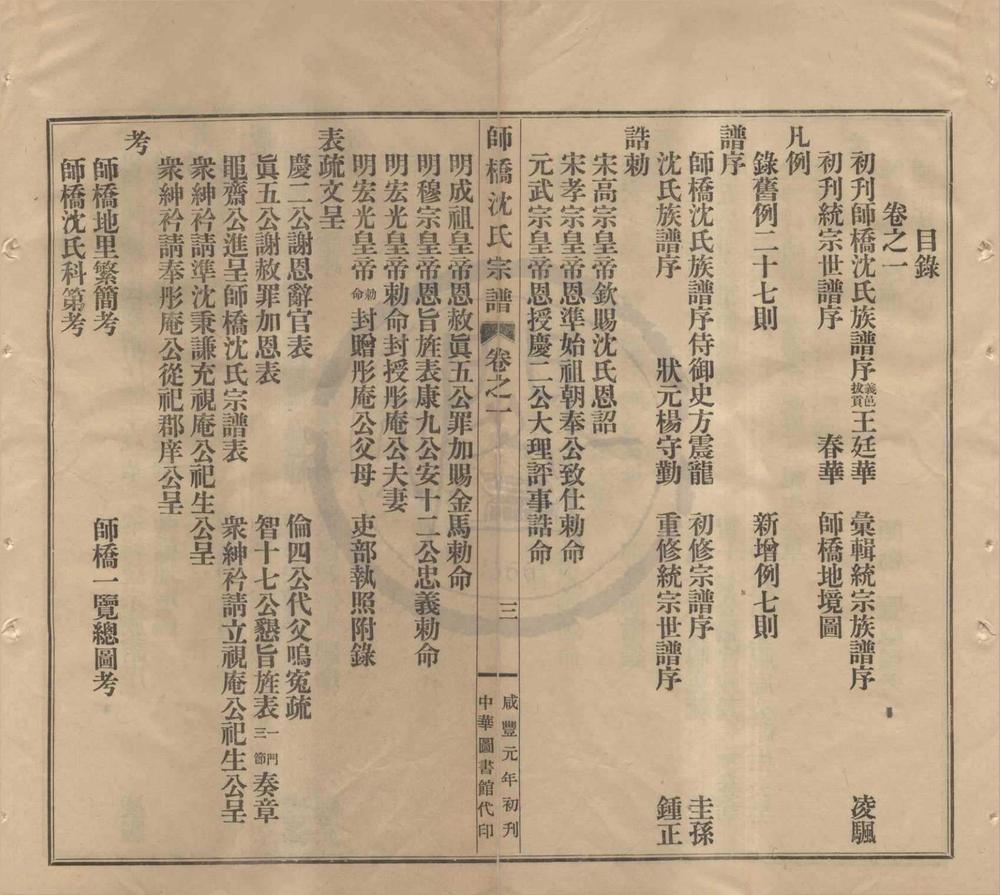 目錄
卷之一
初刊師橋沈氏族譜序 義邑拔貢 王廷華 彙輯統宗族譜序 凌颿
初刊統宗世譜序 春華 師橋地境圖
凡例
錄舊例二十七則 新增例七則
譜序
師橋沈氏族譜序 侍御史方震龍 初修宗譜序 圭孫
沈氏族譜序 狀元楊守勤 重修統宗世譜序 鍾正
誥勅
宋高宗皇帝欽賜沈氏恩詔
宋孝宗皇帝恩準始祖朝奉公致仕勅命
元武宗皇帝恩授慶二公大理評事誥命
師橋沈氏宗譜 卷之一 三 咸豐元年初刊 中華圖書館代印
明成祖皇帝恩赦眞五公罪加賜金馬勅命
明穆宗皇帝恩旨旌表康九公安十二公忠義勅命
明宏光皇帝勅命封授彤庵公夫妻
明宏光皇帝勅命封贈彤庵公父母 吏部執照附錄
表疏文呈
慶二公謝恩辭官表 倫四公代父鳴寃疏
眞五公謝赦罪加恩表 智十七公懇旨旌表一門三節奏章
黽齋公進呈師橋沈氏宗譜表 衆紳衿請立視庵公祀生公呈
衆紳衿請準沈秉謙充視庵公祀生公呈
衆紳衿請奉彤庵公從祀郡庠公呈
考
師橋地里繁簡考 師橋一覽總圖考
師橋沈氏科第考